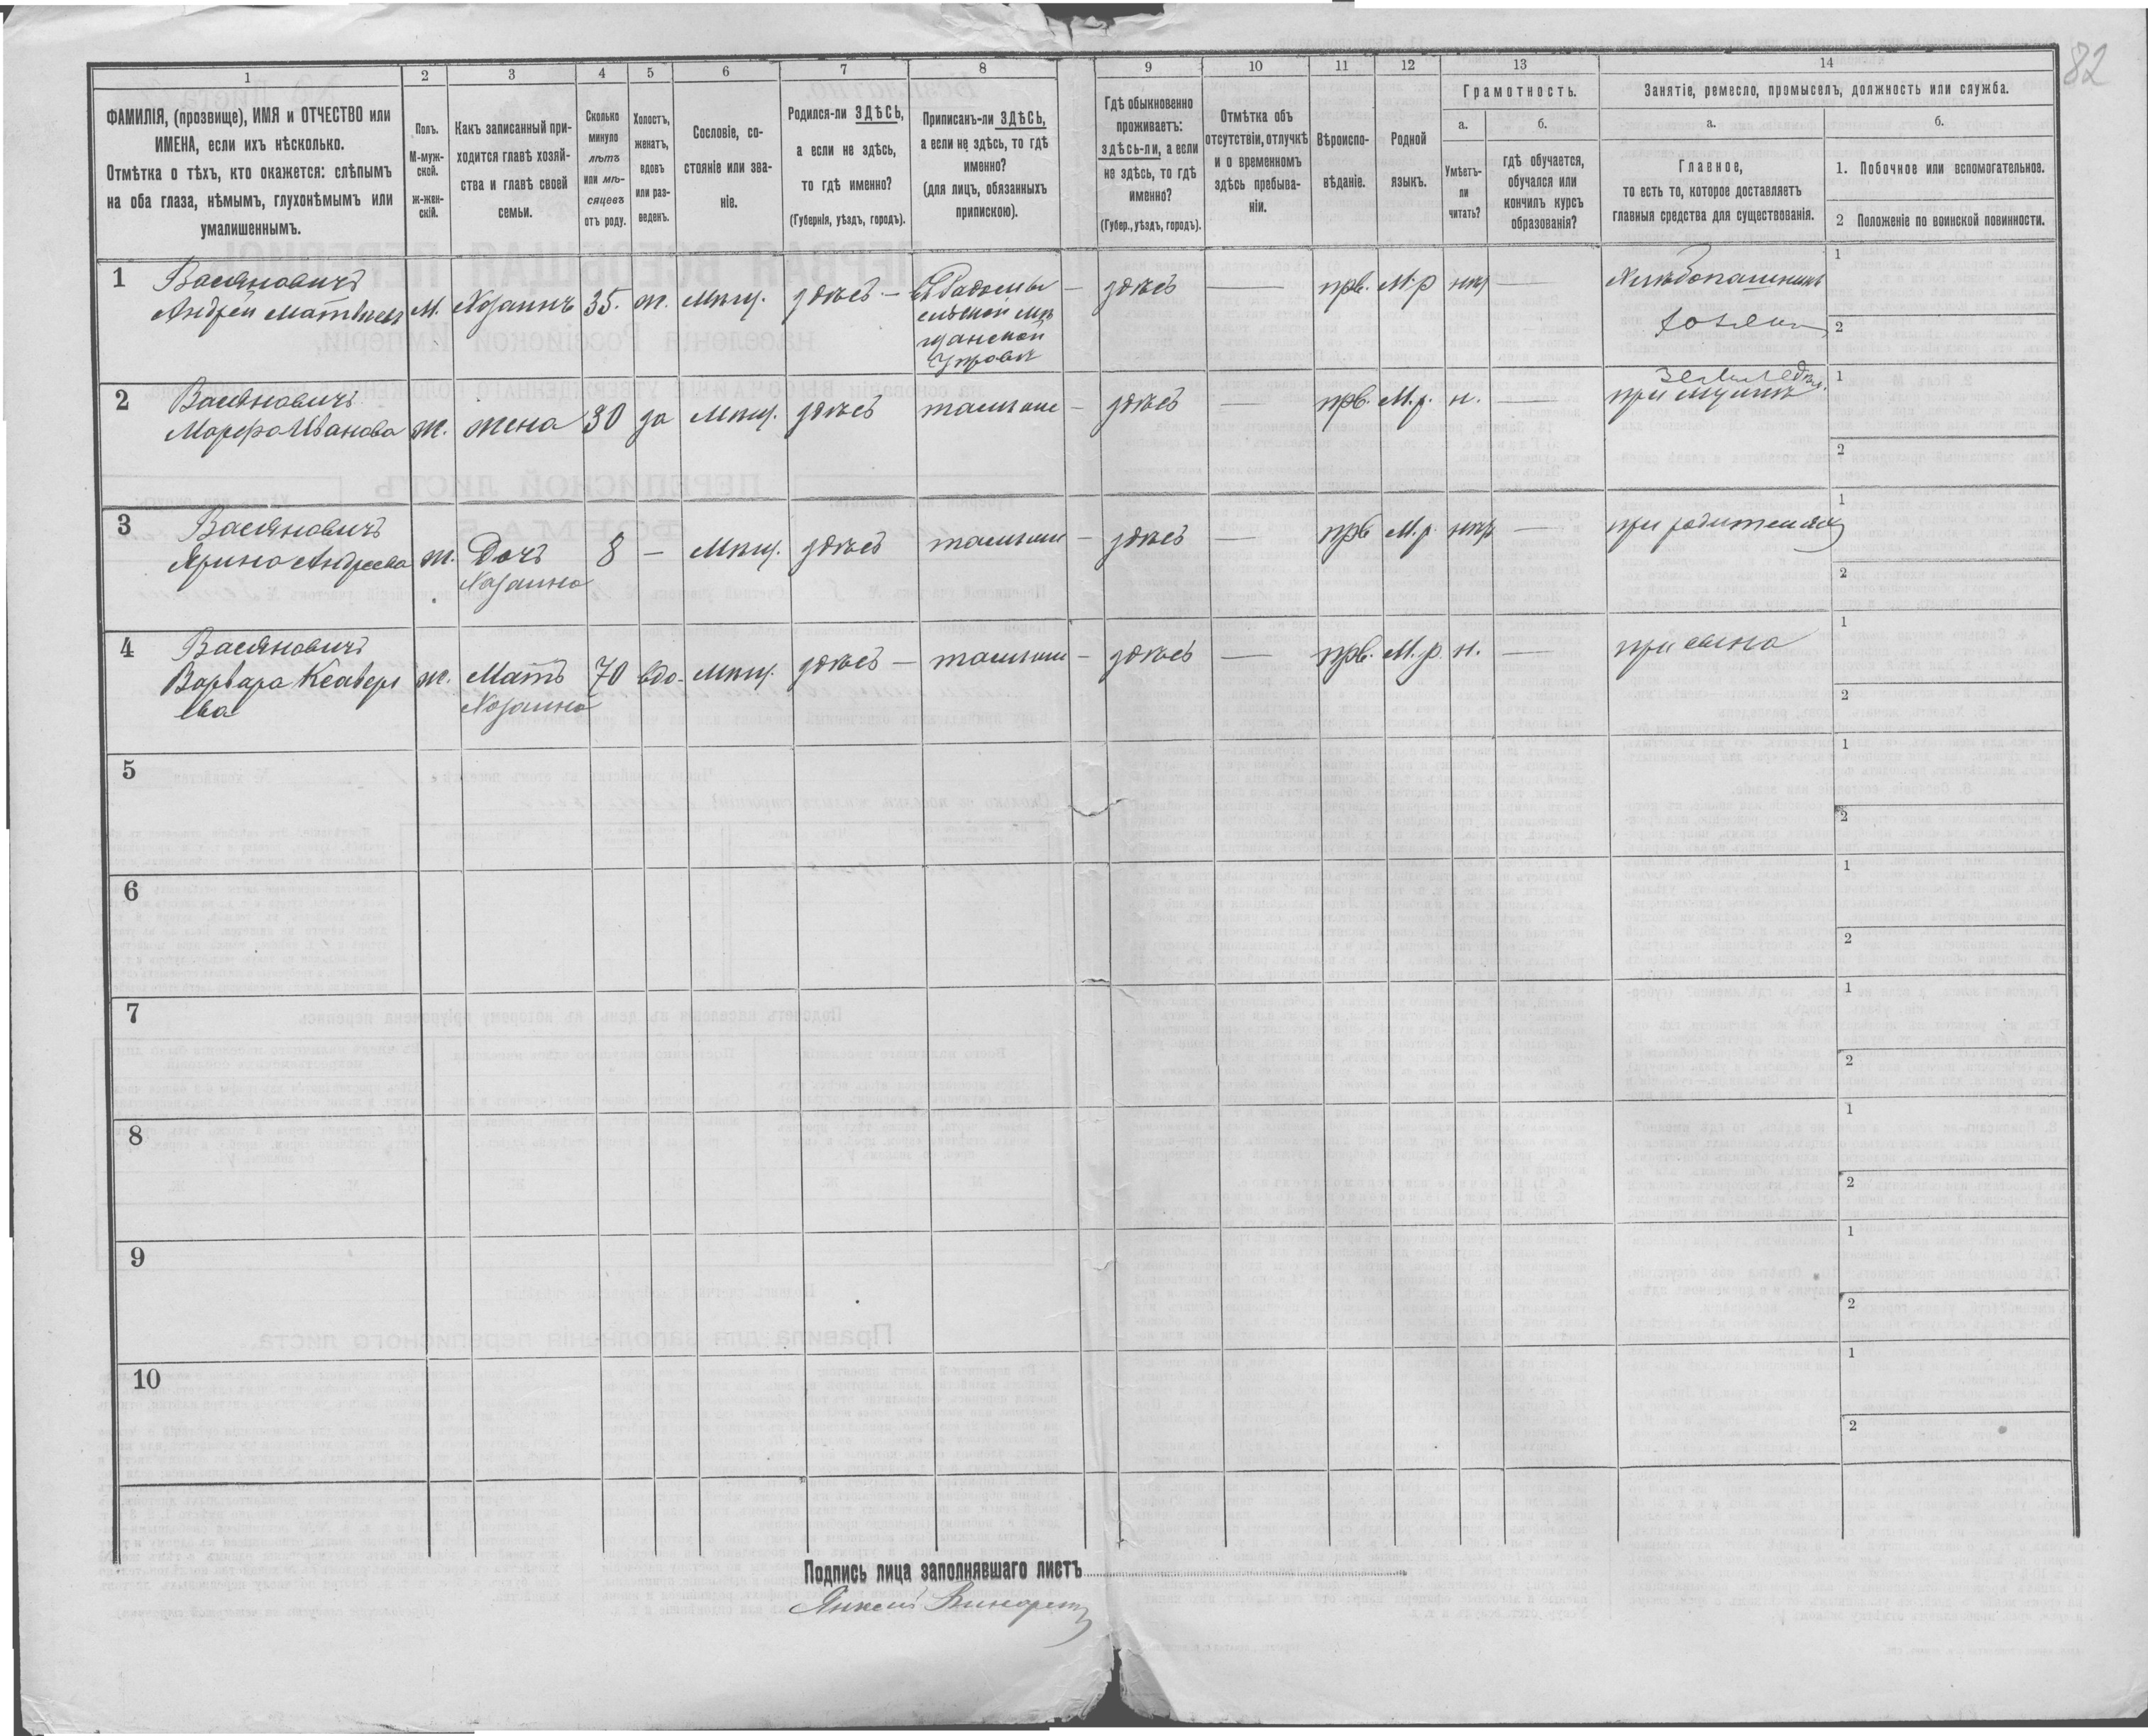 82
1
2
3
4
5
6
7
8
9
10
11
12
13
14
ФАМИЛІЯ, (прозвище), ИМЯ и ОТЧЕСТВО или
ИМЕНА, если ихъ нѣсколько.
Отмѣтка о тѣхъ, кто окажется: слѣпымъ
на оба глаза, нѣмымъ, глухонѣмымъ или
умалишеннымъ.
Полъ.
М-муж-
ской.
ж-жен-
скій.
Какъ записанный при-
ходится главѣ хозяй-
ства и главѣ своей
семьи.
Сколько
минуло
лѣтъ
или мѣ-
сяцевъ
отъ роду.
Холостъ,
женатъ,
вдовъ
или раз-
веденъ.
Сословіе, со-
стояніе или зва-
ніе.
Родился-ли ЗДѢСЬ,
а если не здѣсь,
то гдѣ именно?
(Губернія, уѣздъ, городъ).
Приписанъ-ли ЗДѢСЬ,
а если не здѣсь, то гдѣ
именно?
(для лицъ, обязанныхъ
припискою).
Гдѣ обыкновенно
проживаетъ:
здѣсь-ли, а если
не здѣсь, то гдѣ
именно?
(Губер., уѣздъ, городъ).
Отмѣтка объ
отсутствіи, отлучкѣ
и о временномъ
здѣсь пребыва-
ніи.
Вѣроиспо-
вѣданіе.
Родной
языкъ.
Грамотность.
а.
Умѣетъ-
ли
читать?
б.
гдѣ обучается,
обучался или
кончилъ курсъ
образованія?
Занятіе, ремесло, промыселъ, должность или служба.
а.
Главное,
то есть то, которое доставляетъ
главныя средства для существованія.
б.
1. Побочное или вспомогательное.
2 Положеніе по воинской повинности.
1 Васяновичъ
Андрей Матвѣевъ М. Хозяинъ 35. ж. Мѣщ. здѣсь — въ Радомы — здѣсь — прв. М.р нѣт — Хлѣбопашникъ 1
сльской мѣ
щанской
Управѣ
хозяин 2
2 Васяновичъ
Марфа Иванова ж. жена 30 за Мѣщ. здѣсь тамъже — здѣсь — прв. М.р. н. — при мужѣ 1
2
3 Васяновичъ
Ярина Андреева ж. Дочъ 8 — Мѣщ. здѣсь тамъже — здѣсь — прв М.р. нѣт — при родителях 1
Хозаина
2
4 Васяновичъ
Варвара ж. Матъ 70 вдо. Мѣщ. здѣсь — тамъже — здѣсь — прв. М.р. н. — при сына 1
Хозаина
2
5 1
2
6 1
2
7 1
2
8 1
2
9 1
2
10 1
2
Подпись лица заполнявшаго листъ